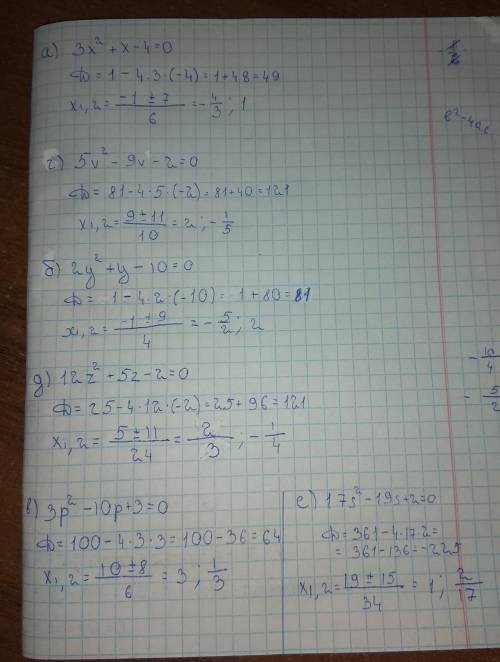 а) 3x² + x - 4 = 0
D = 1 - 4·3·(-4) = 1 + 48 = 49
x₁,₂ = (-1 ± 7)/6 = -4/3 ; 1
г) 5v² - 9v - 2 = 0
D = 81 - 4·5·(-2) = 81 + 40 = 121
x₁,₂ = (9 ± 11)/10 = 2 ; -1/5
б) 2y² + y - 10 = 0
D = 1 - 4·2·(-10) = 1 + 80 = 81
x₁,₂ = (-1 ± 9)/4 = -5/2 ; 2
д) 12z² + 5z - 2 = 0
D = 25 - 4·12·(-2) = 25 + 96 = 121
x₁,₂ = (5 ± 11)/24 = 2/3 ; -1/4
в) 3p² - 10p + 3 = 0
D = 100 - 4·3·3 = 100 - 36 = 64
x₁,₂ = (10 ± 8)/6 = 3 ; 1/3
е) 17s² - 19s + 2 = 0
D = 361 - 4·17·2 =
= 361 - 136 = -225
x₁,₂ = (19 ± 15)/34 = 1 ; 2/17
в² - 4ас
-10/4
-5/2